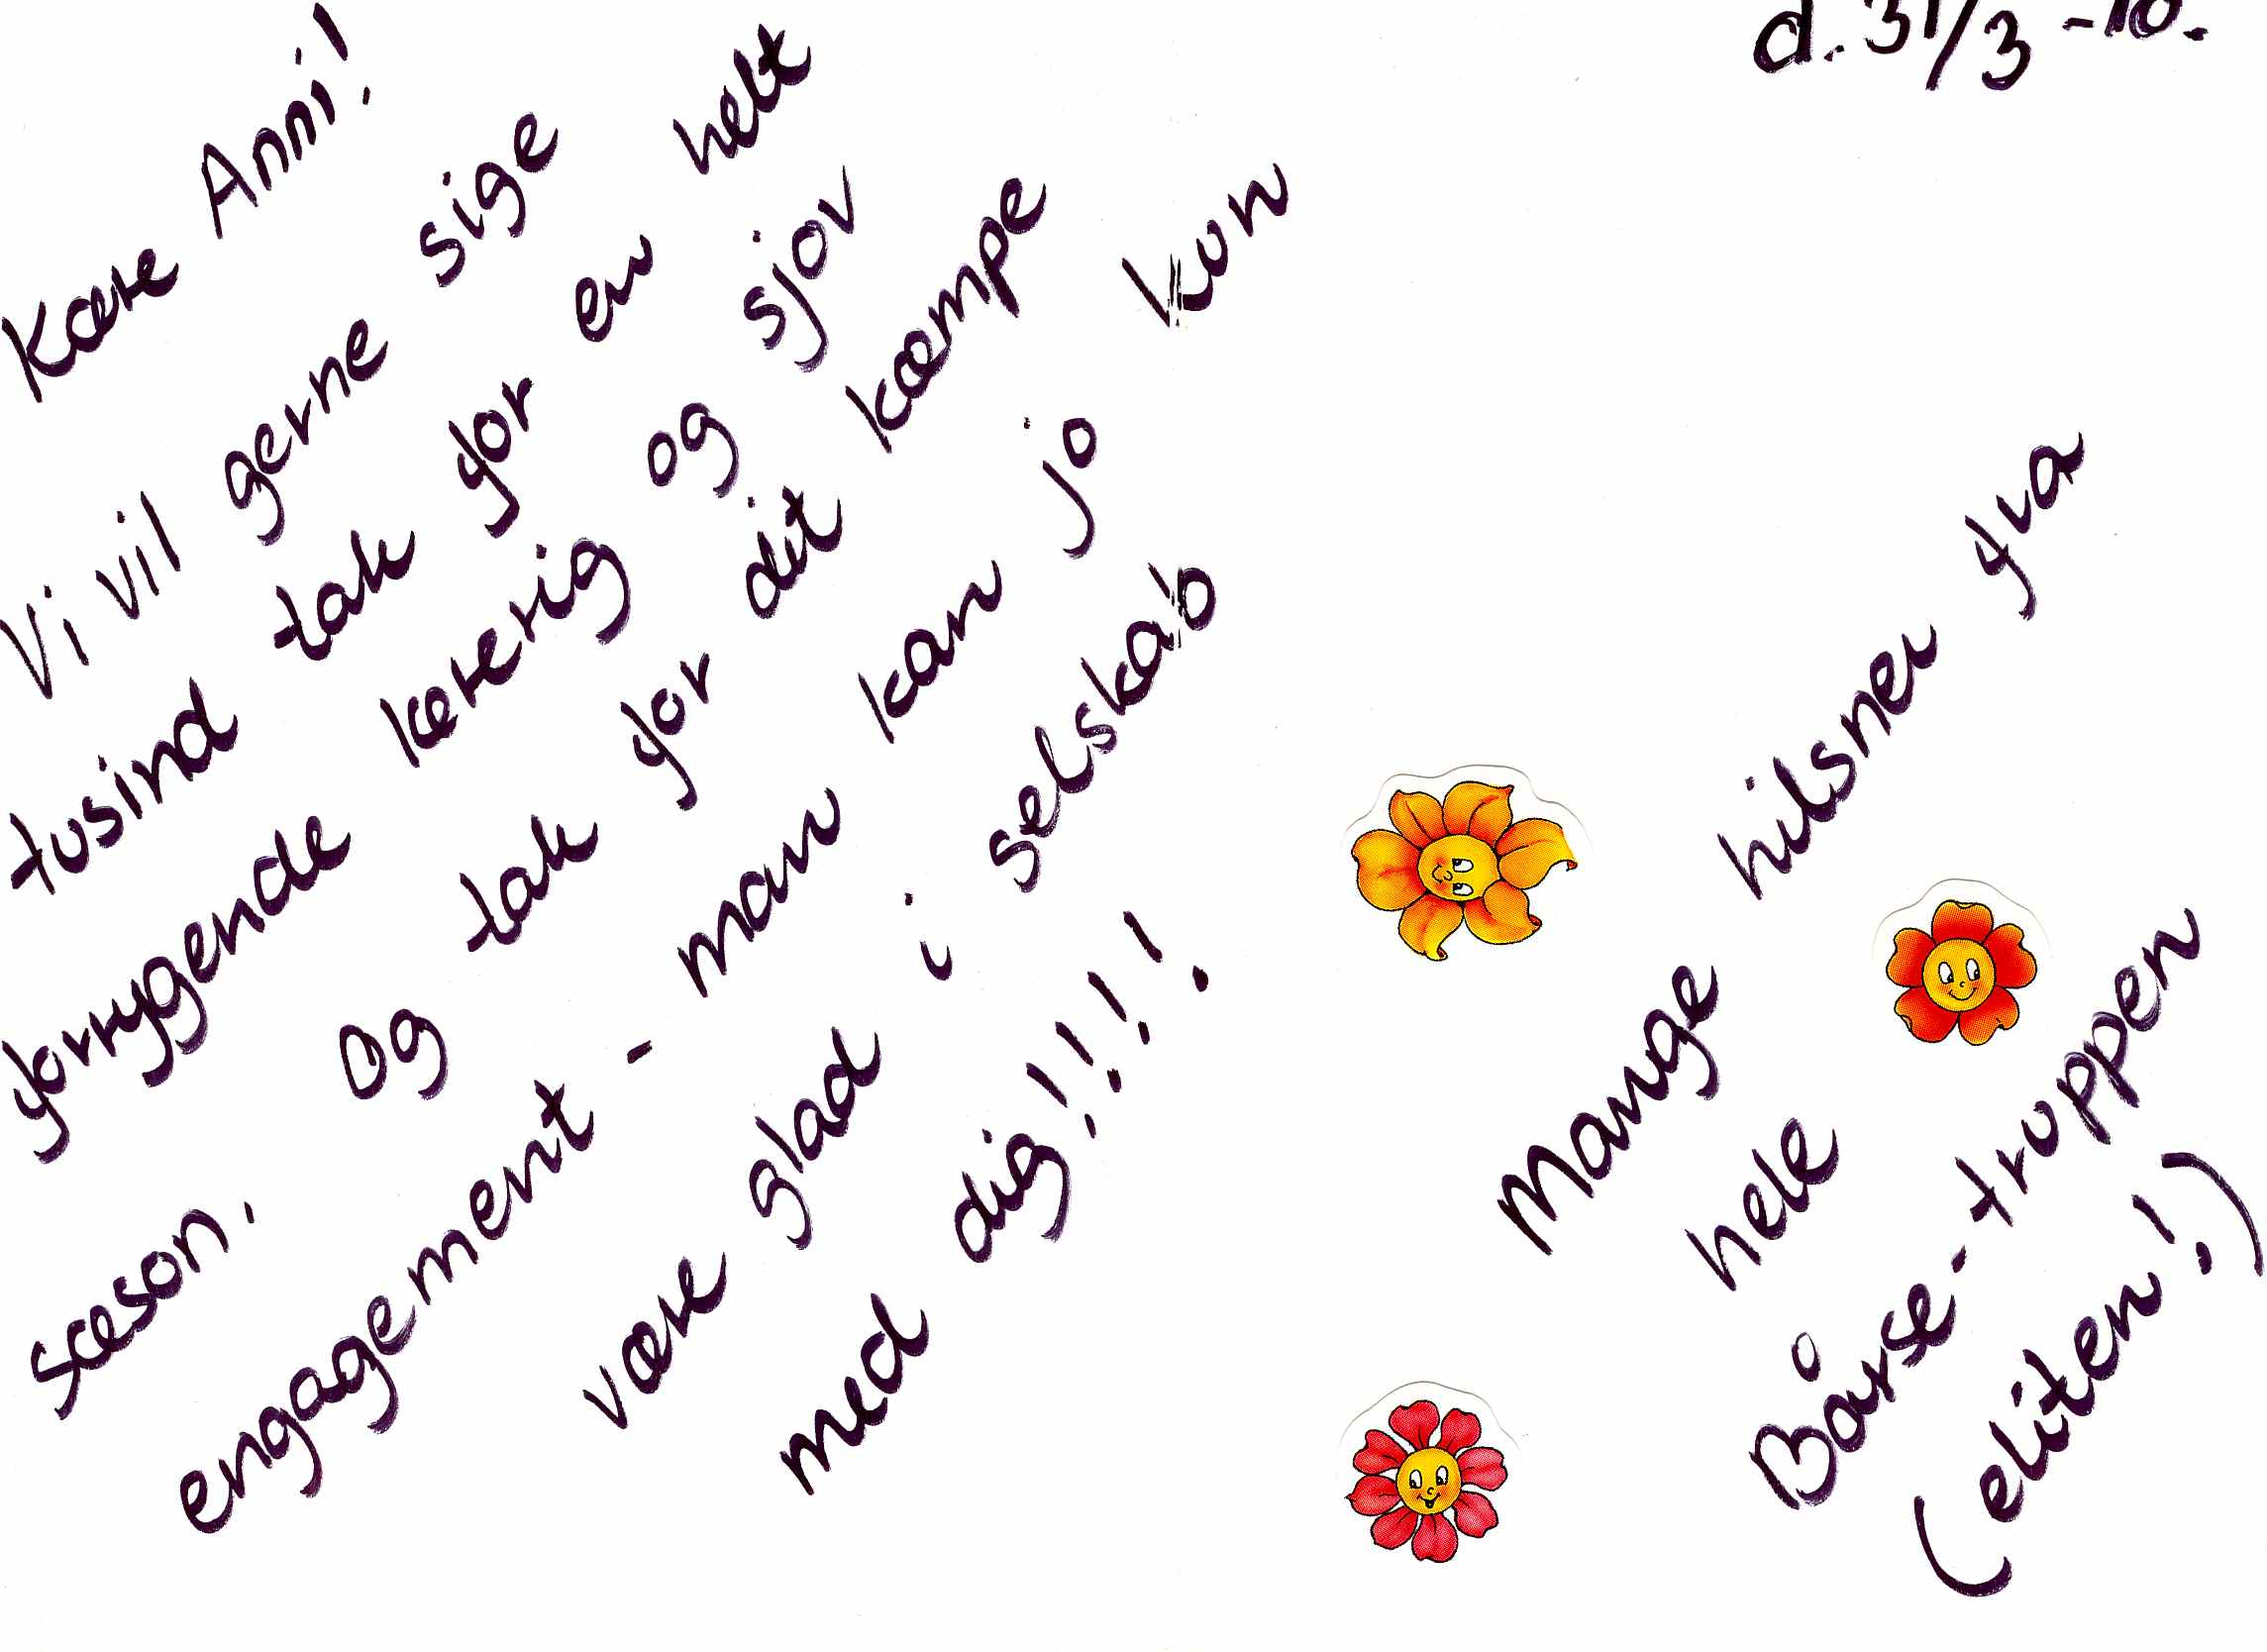 d. 31/3 -10.
Kære Anni!
Vi vil gerne sige
tusind tak for en helt
forrygende kererig og sjov
sæson. Og tak for dit kæmpe
engagement - man kan jo kun
være glad i selskab
med dig!!!!
Mange hilsner fra
hele
Bårse-truppen
(eliten!)